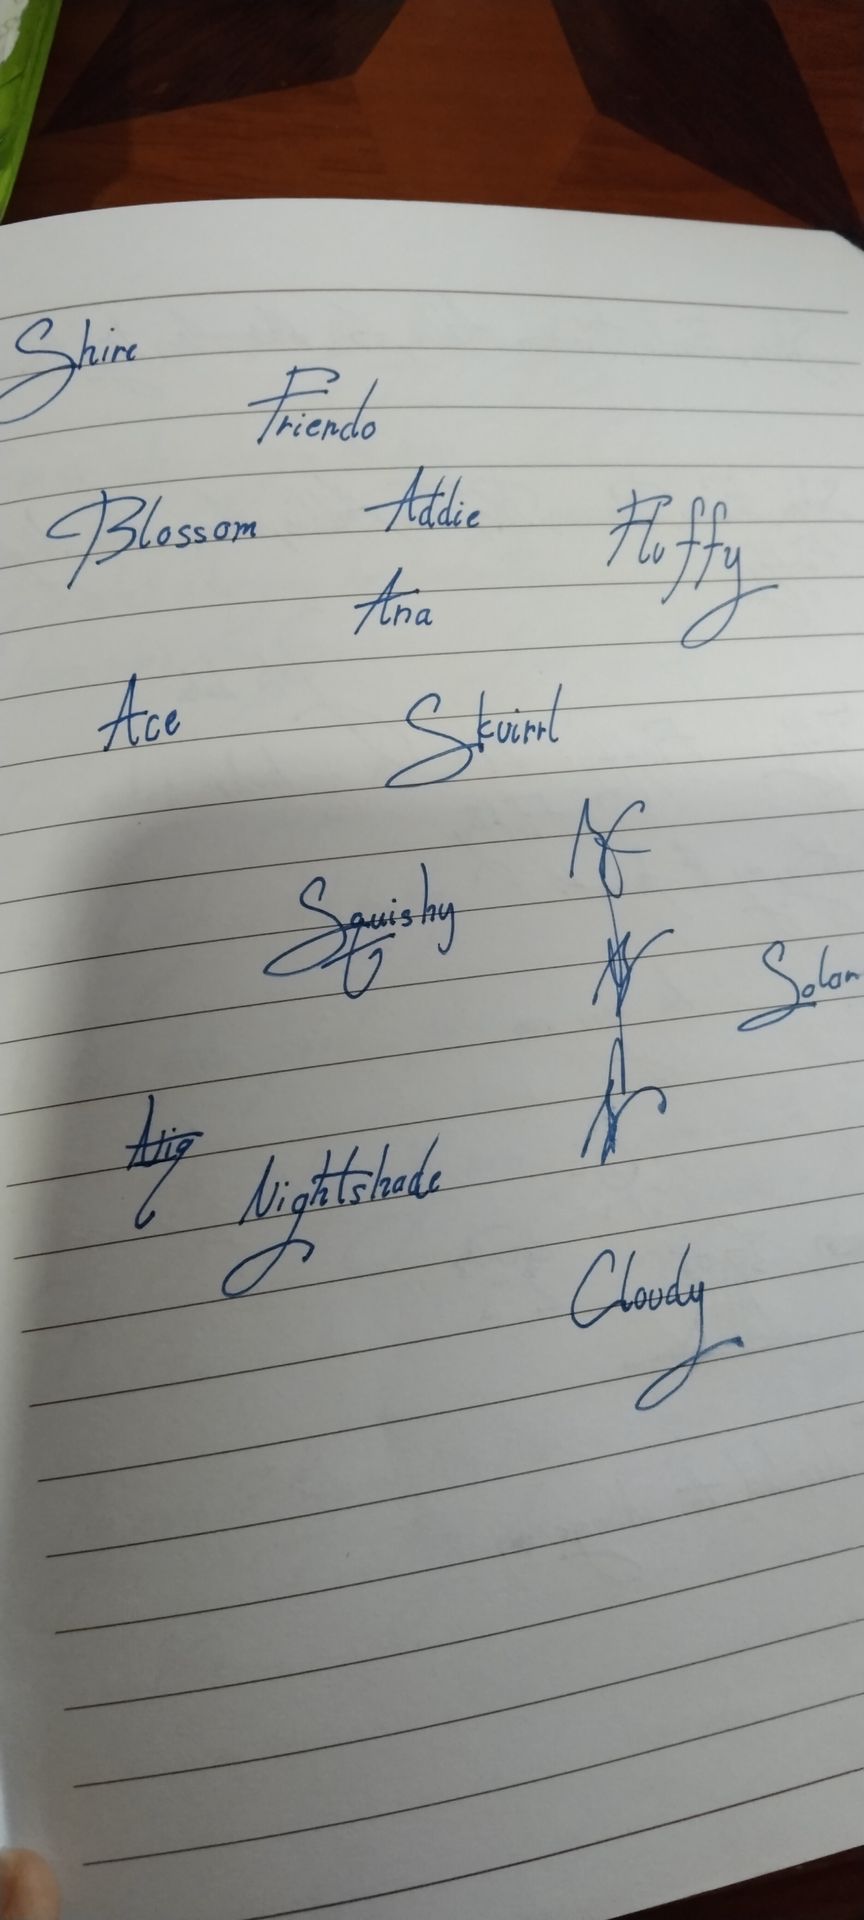 Shire
Friendo
Blossom Addie Fluffy
Ana
Ace Skvirrl
Squishy
Solar
Nightshade
Cloudy